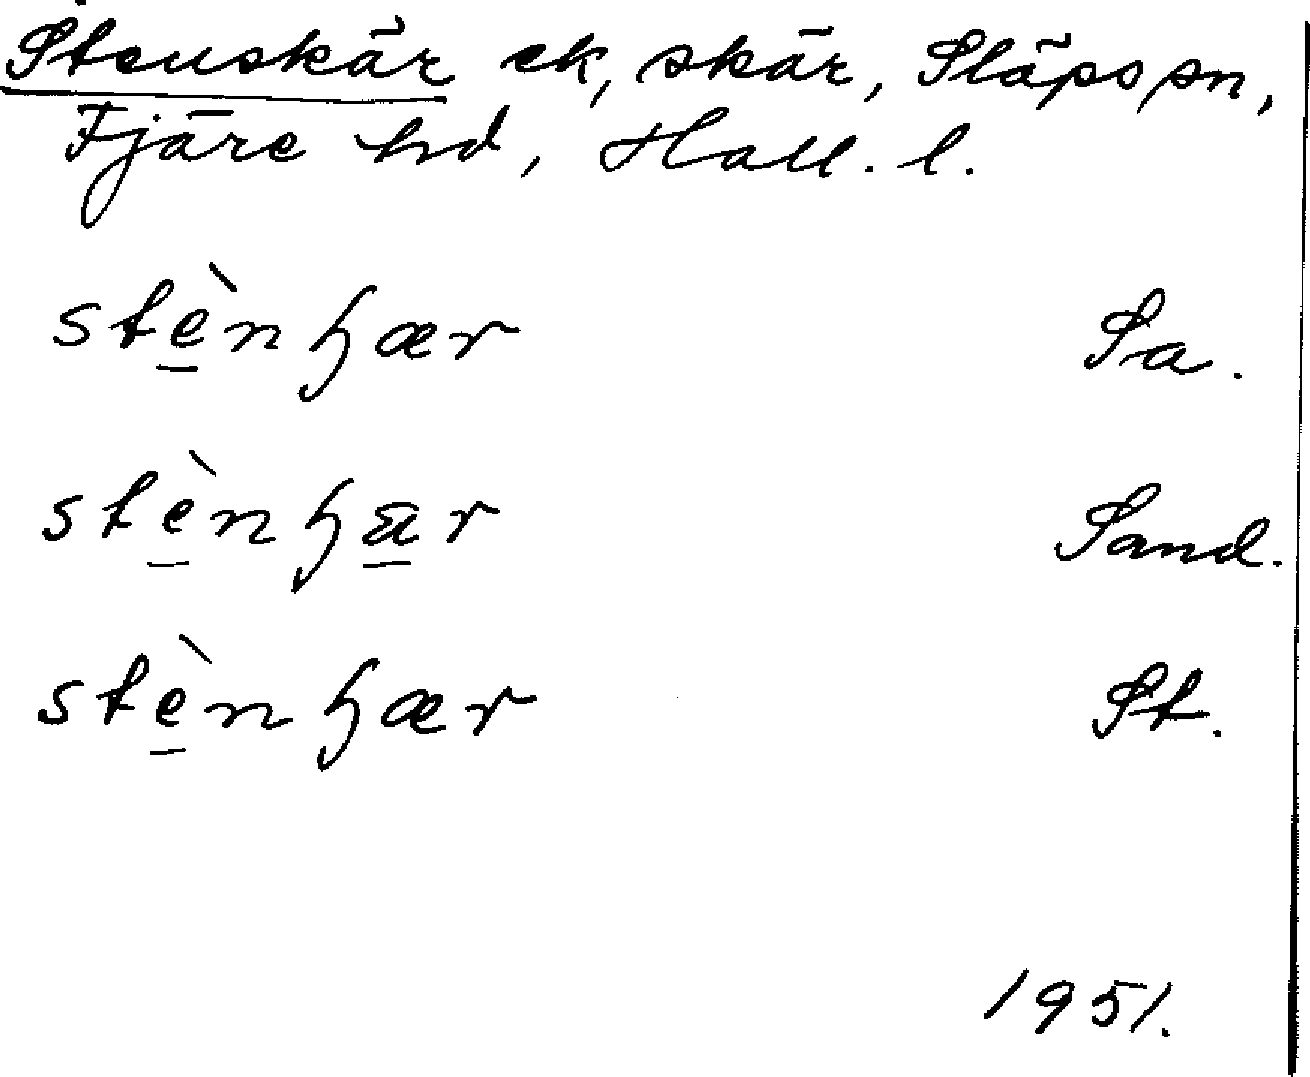 Stenskär ek, skär, Släps sn,
Fjäre hd, Hall. l.
stè̠nɧær Sa.
stè̠nɧä̠r Sand.
stè̠nɧær St.
1951.